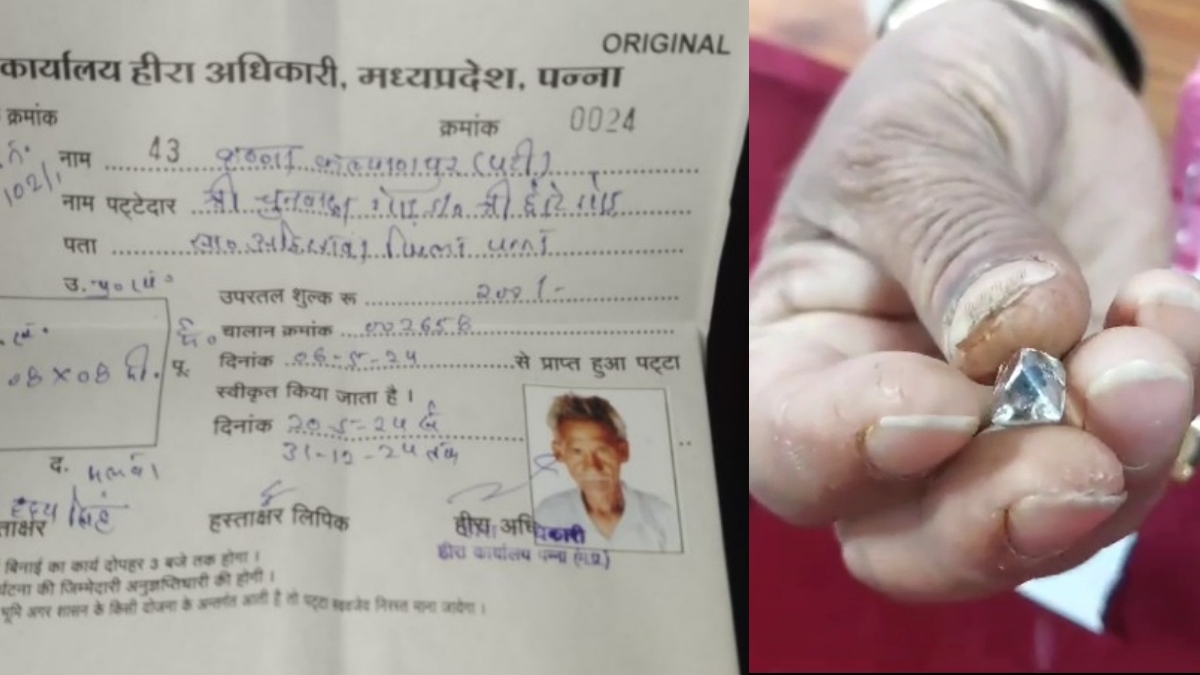 ORIGINAL
कार्यालय हीरा अधिकारी, मध्यप्रदेश, पन्ना
क्रमांक
क्रमांक 0024
नाम 43 कल्याणपुर (पटी)
102/1
नाम पट्टेदार श्री चुनवादा गोंड श्री
पता जिला पन्ना
उ.
उपरतल शुल्क रू 201/-
चालान क्रमांक 002658
08 X 08 मी.
पू.
दिनांक 06-5-24 से प्राप्त हुआ पट्टा
स्वीकृत किया जाता है।
दिनांक 20-5-24 से
31-12-24 तक
द.
हस्ताक्षर लिपिक
हीरा अधिकारी
हीरा कार्यालय पन्ना (म.प्र.)
बिनाई का कार्य दोपहर 3 बजे तक होगा।
की जिम्मेदारी अनुज्ञप्तिधारी की होगी।
भूमि अगर शासन के किसी योजना के अन्तर्गत आती है तो पट्टा स्वतः निरस्त माना जायेगा।